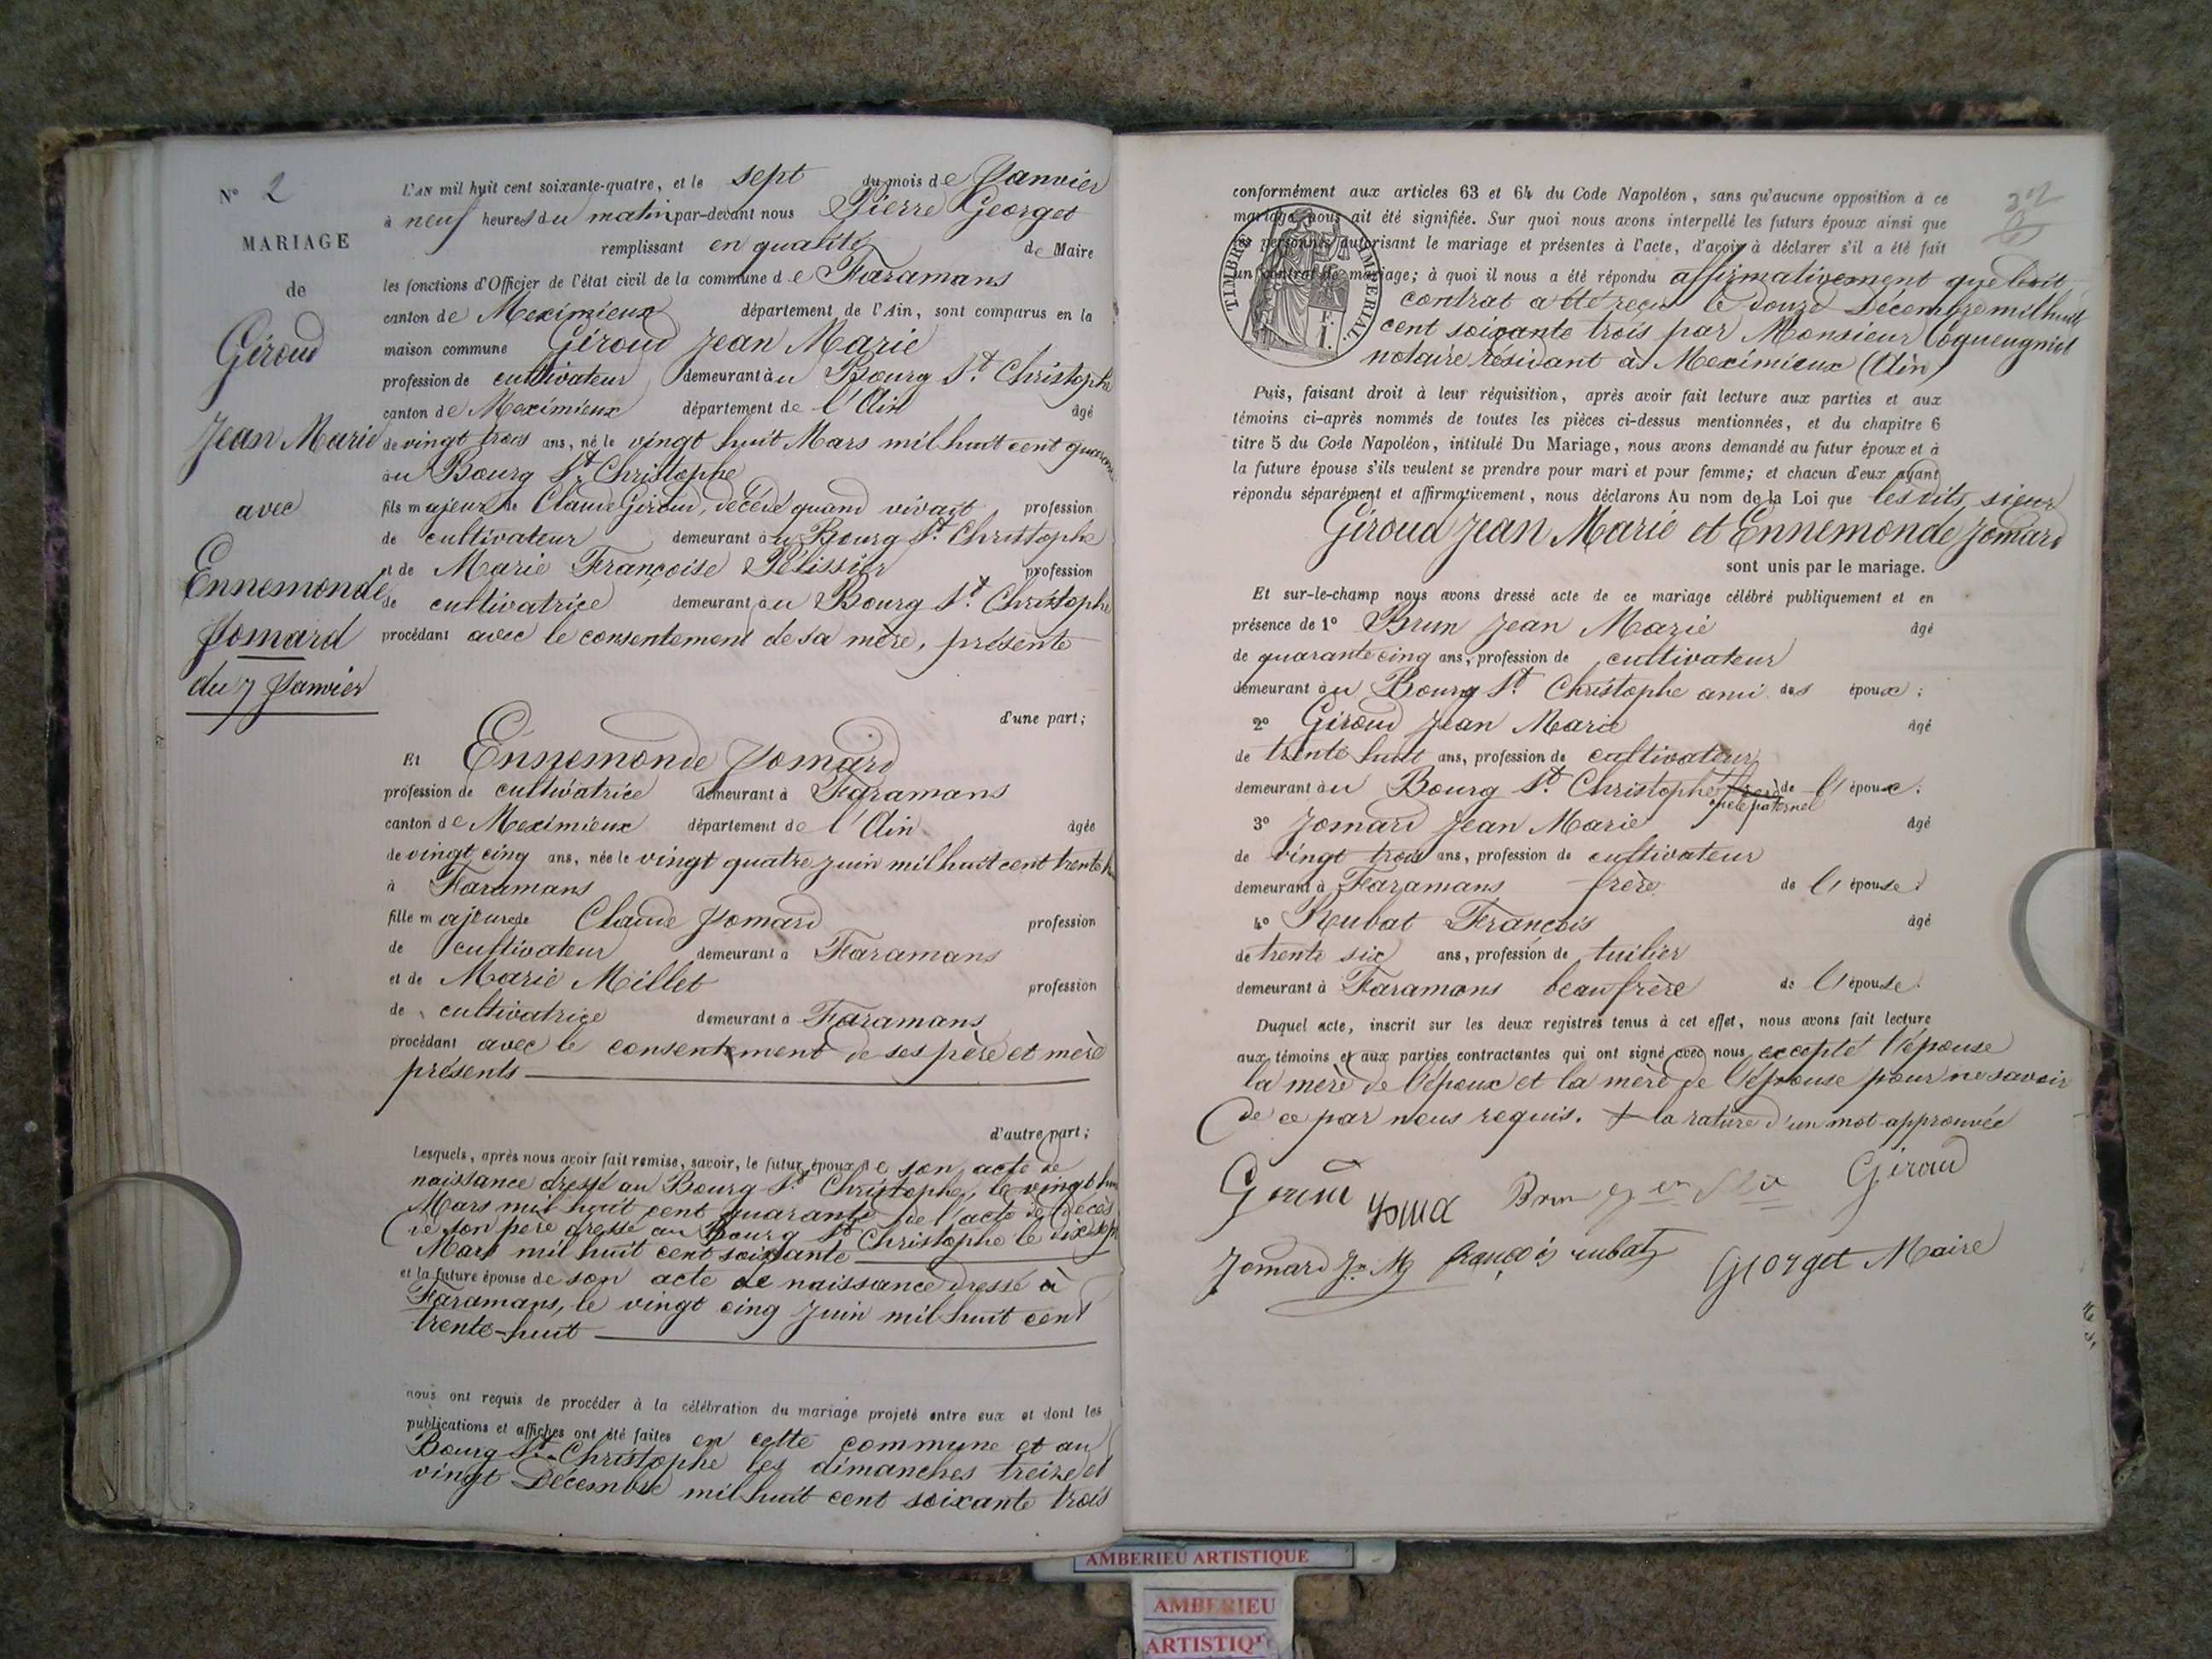 N° 2
MARIAGE
de
Giroud
Jean Marie
avec
Ennemonde
Jomard
du 7 Janvier
L'AN mil huit cent soixante-quatre, et le sept du mois de Janvier
à neuf heures du matin par-devant nous Pierre Georget
remplissant en qualité de Maire
les fonctions d'Officier de l'état civil de la commune de Faramans
canton de Meximieux département de l'Ain, sont comparus en la
maison commune Giroud Jean Marie
profession de cultivateur demeurant au Bourg St. Christophe
canton de Meximieux département de l'Ain âgé
de vingt trois ans, né le vingt huit Mars mil huit cent quarante
au Bourg St. Christophe
fils majeur de Claude Giroud, décédé quand vivait profession
de cultivateur demeurant au Bourg St. Christophe
et de Marie Françoise Pélissier profession
de cultivatrice demeurant au Bourg St. Christophe
procédant avec le consentement de sa mère, présente
d'une part;
Et Ennemonde Jomard
profession de cultivatrice demeurant à Faramans
canton de Meximieux département de l'Ain âgée
de vingt cinq ans, née le vingt quatre juin mil huit cent trente h
à Faramans
fille majeure de Claude Jomard profession
de cultivateur demeurant à Faramans
et de Marie Millet profession
de cultivatrice demeurant à Faramans
procédant avec le consentement de ses père et mère
présents
d'autre part;
Lesquels, après nous avoir fait remise, savoir, le futur époux de son acte de
naissance dressé au Bourg St. Christophe, le vingt hui
Mars mil huit cent quarante, de l'acte de décès
de son père dressé au Bourg St. Christophe le dix sept
Mars mil huit cent soixante
et la future épouse de son acte de naissance dressé à
Faramans, le vingt cinq juin mil huit cent
trente-huit
nous ont requis de procéder à la célébration du mariage projeté entre eux et dont les
publications et affiches ont été faites en cette commune et au
Bourg St. Christophe les dimanches treize et
vingt Décembre mil huit cent soixante trois
conformément aux articles 63 et 64 du Code Napoléon, sans qu'aucune opposition à ce
mariage nous ait été signifiée. Sur quoi nous avons interpellé les futurs époux ainsi que
les personnes autorisant le mariage et présentes à l'acte, d'avoir à déclarer s'il a été fait
un contrat de mariage; à quoi il nous a été répondu affirmativement que ledit
contrat a été reçu le douze Décembre mil huit
cent soixante trois par Monsieur Coqueugniot
notaire résidant à Meximieux (Ain)
TIMBRE IMPERIAL
Puis, faisant droit à leur réquisition, après avoir fait lecture aux parties et aux
témoins ci-après nommés de toutes les pièces ci-dessus mentionnées, et du chapitre 6
titre 5 du Code Napoléon, intitulé Du Mariage, nous avons demandé au futur époux et à
la future épouse s'ils veulent se prendre pour mari et pour femme; et chacun d'eux ayant
répondu séparément et affirmativement, nous déclarons Au nom de la Loi que lesdits sieur
Giroud Jean Marie et Ennemonde Jomard
sont unis par le mariage.
Et sur-le-champ nous avons dressé acte de ce mariage célébré publiquement et en
présence de 1° Brun Jean Marie âgé
de quarante cinq ans, profession de cultivateur
demeurant au Bourg St. Christophe ami des époux;
2° Giroud Jean Marie âgé
de trente huit ans, profession de cultivateur
demeurant au Bourg St. Christophe frère de l'époux;
oncle paternel
3° Jomard Jean Marie âgé
de vingt trois ans, profession de cultivateur
demeurant à Faramans frère de l'épouse;
4° Rubat François âgé
de trente six ans, profession de tuilier
demeurant à Faramans beau frère de l'épouse.
Duquel acte, inscrit sur les deux registres tenus à cet effet, nous avons fait lecture
aux témoins et aux parties contractantes qui ont signé avec nous excepté l'épouse
la mère de l'époux et la mère de l'épouse pour ne savoir
de ce par nous requis. + la rature d'un mot approuvée
Giroud Brun Giroud
Jomard J. M françois rubat Georget Maire
AMBERIEU ARTISTIQUE
AMBERIEU
ARTISTIQUE